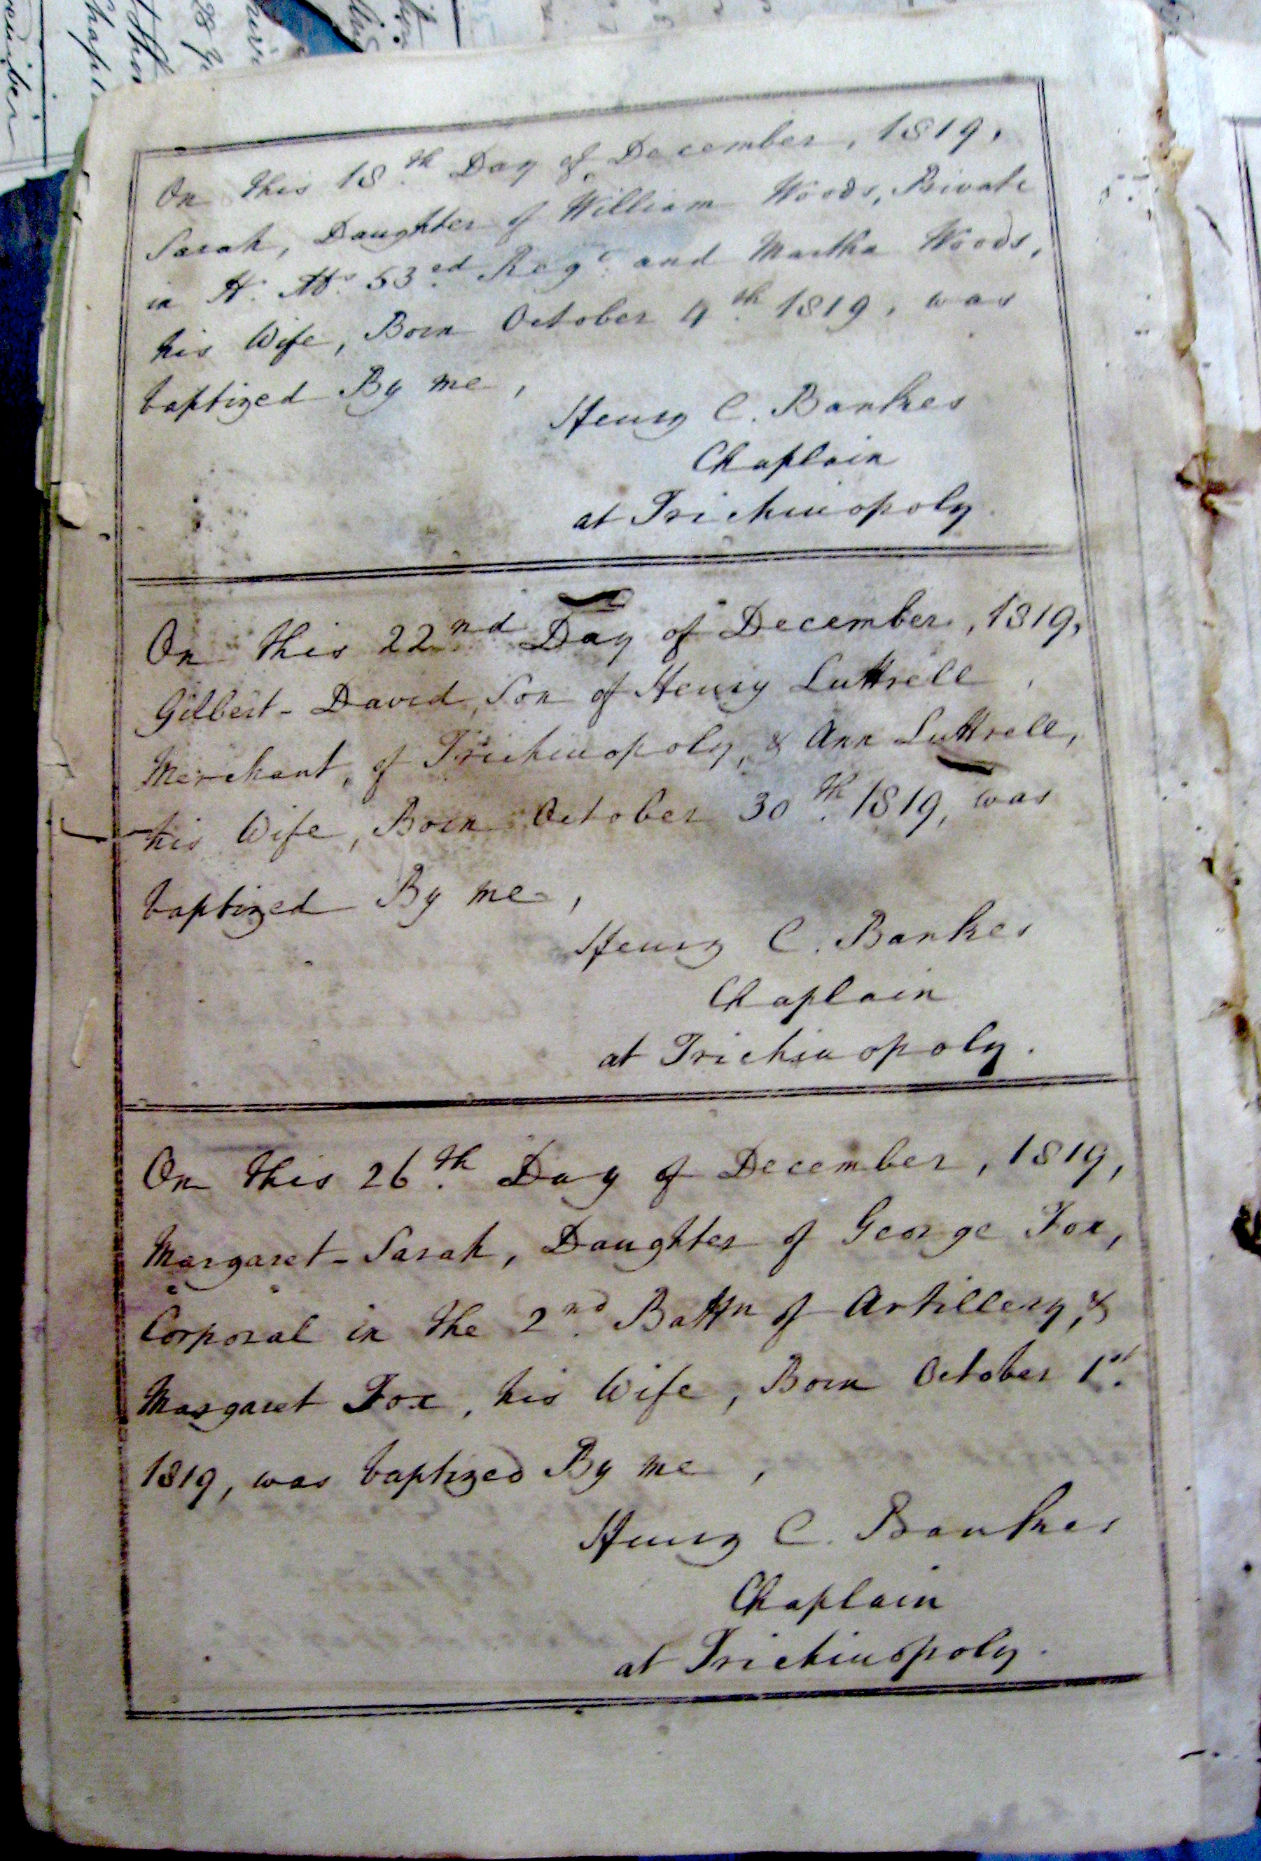 On this 18th Day of December, 1819,
Sarah, Daughter of William Woods, Private
in H. Ms 53rd Regt and Martha Woods,
his Wife, Born October 4th 1819, was
baptized By me,
Henry C. Bankes
Chaplain
at Trichinopoly.
On this 22nd Day of December, 1819,
Gilbert-David, Son of Henry Luttrell
Merchant, of Trichinopoly, & Ann Luttrell,
his Wife, Born October 30th 1819, was
baptized By me,
Henry C. Bankes
Chaplain
at Trichinopoly.
On this 26th Day of December, 1819,
Margaret-Sarah, Daughter of George Fox,
Corporal in the 2nd Battn of Artillery, &
Margaret Fox, his Wife, Born October 1st
1819, was baptized By me,
Henry C. Bankes
Chaplain
at Trichinopoly.